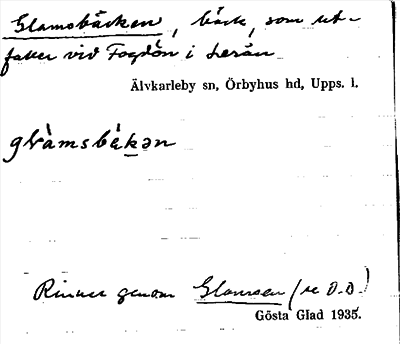 Glamsbäcken, bäck, som ut-
faller vid Fogdön i Lerån
Älvkarleby sn, Örbyhus hd, Upps. l.
glàmsbä̀kən
Rinner genom Glamsen (se d.o.)
Gösta Glad 1935.